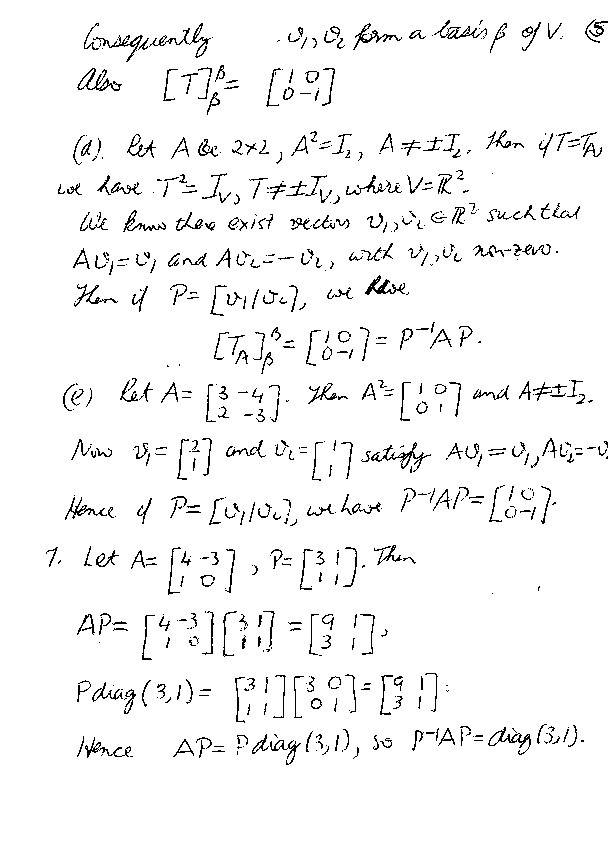 Consequently v₁, v₂ form a basis β of V. ⑤
Also [T]ᵝᵦ = [1 0; 0 −1]
(d). Let A be 2×2, A² = I₂, A ≠ ±I₂. Then if T = T_A
we have T² = I_V, T ≠ ±I_V, where V = ℝ².
We know there exist vectors v₁, v₂ ∈ ℝ² such that
Av₁ = v₁ and Av₂ = −v₂, with v₁, v₂ non-zero.
Then if P = [v₁|v₂], we have
[T_A]ᵝᵦ = [1 0; 0 −1] = P⁻¹AP.
(e) Let A = [3 −4; 2 −3]. Then A² = [1 0; 0 1] and A ≠ ±I₂.
Now v₁ = [2; 1] and v₂ = [1; 1] satisfy Av₁ = v₁, Av₂ = −v
Hence if P = [v₁|v₂], we have P⁻¹AP = [1 0; 0 −1].
7. Let A = [4 −3; 1 0], P = [3 1; 1 1]. Then
AP = [4 −3; 1 0][3 1; 1 1] = [9 1; 3 1],
P diag(3,1) = [3 1; 1 1][3 0; 0 1] = [9 1; 3 1].
Hence AP = P diag(3,1), so P⁻¹AP = diag(3,1).